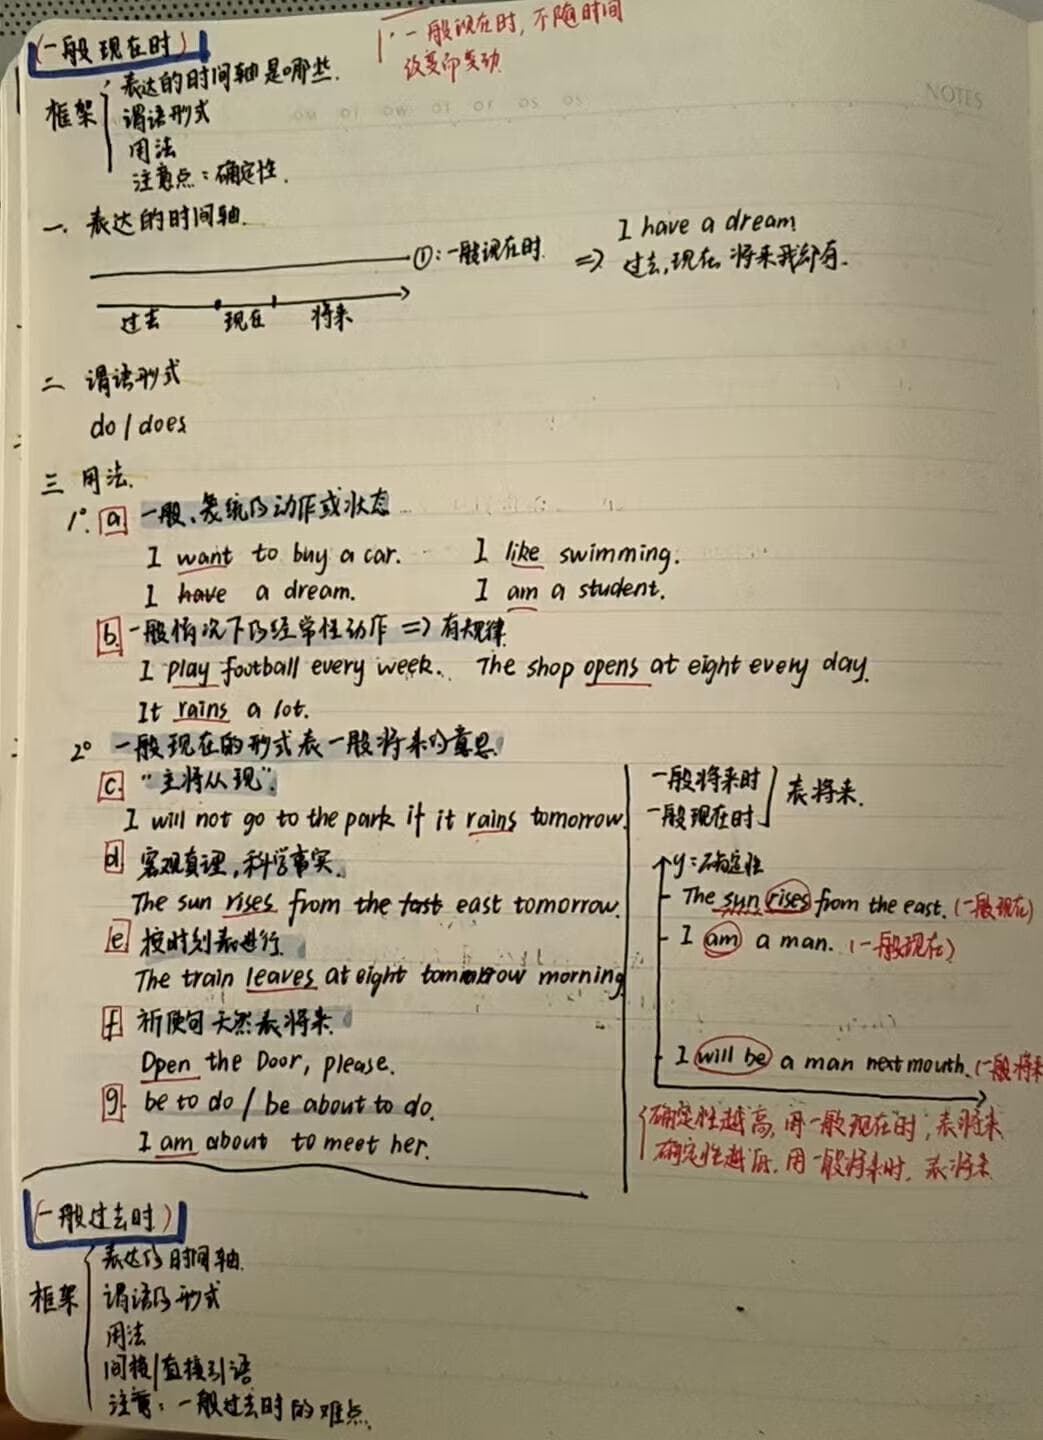 (一般现在时)
一般现在时，不随时间
改变而变动
NOTES
框架
表达的时间轴是哪些.
谓语形式
用法
注意点：确定性.
一. 表达的时间轴.
①:一般现在时. => I have a dream
过去,现在,将来我都有.
过去 现在 将来
二 谓语形式
do/does
三 用法.
1°. a 一般、笼统的动作或状态
I want to buy a car. I like swimming.
I have a dream. I am a student.
b. 一般情况下的经常性动作 => 有规律
I play football every week. The shop opens at eight every day.
It rains a lot.
2° 一般现在的形式表一般将来的意思
c. "主将从现".
I will not go to the park if it rains tomorrow.
d 客观真理,科学事实.
The sun rises from the east tomorrow.
e 按时刻表进行.
The train leaves at eight tomorrow morning
f 祈使句天然表将来.
Open the Door, please.
g. be to do / be about to do.
I am about to meet her.
一般将来时
一般现在时
表将来.
y:确定性
The sun rises from the east. (一般现在)
I am a man. (一般现在)
I will be a man next mouth. (一般将来
确定性越高,用一般现在时,表将来
确定性越低,用一般将来时,表将来
(一般过去时)
框架
表达的时间轴.
谓语的形式
用法
间接/直接引语
注意：一般过去时的难点.